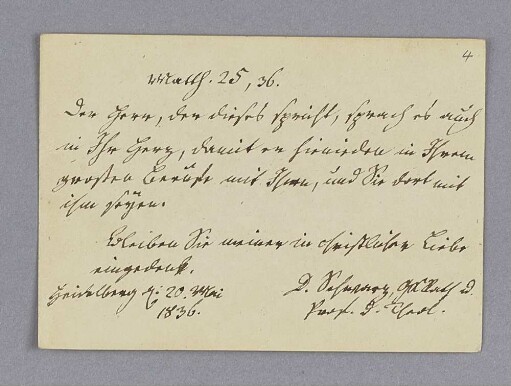 4
Matth. 25, 36.
Der Herr, der dieses spricht, sprach es auch
in Ihr Herz, damit er hienieden in Ihrem
großen Berufe mit Ihnen, und Sie dort mit
ihm seyen.
Bleiben Sie meiner in christlicher Liebe
eingedenk.
Heidelberg d. 20. Mai
1836.
D. Schwarz, GKRath u.
Prof. d. Theol.